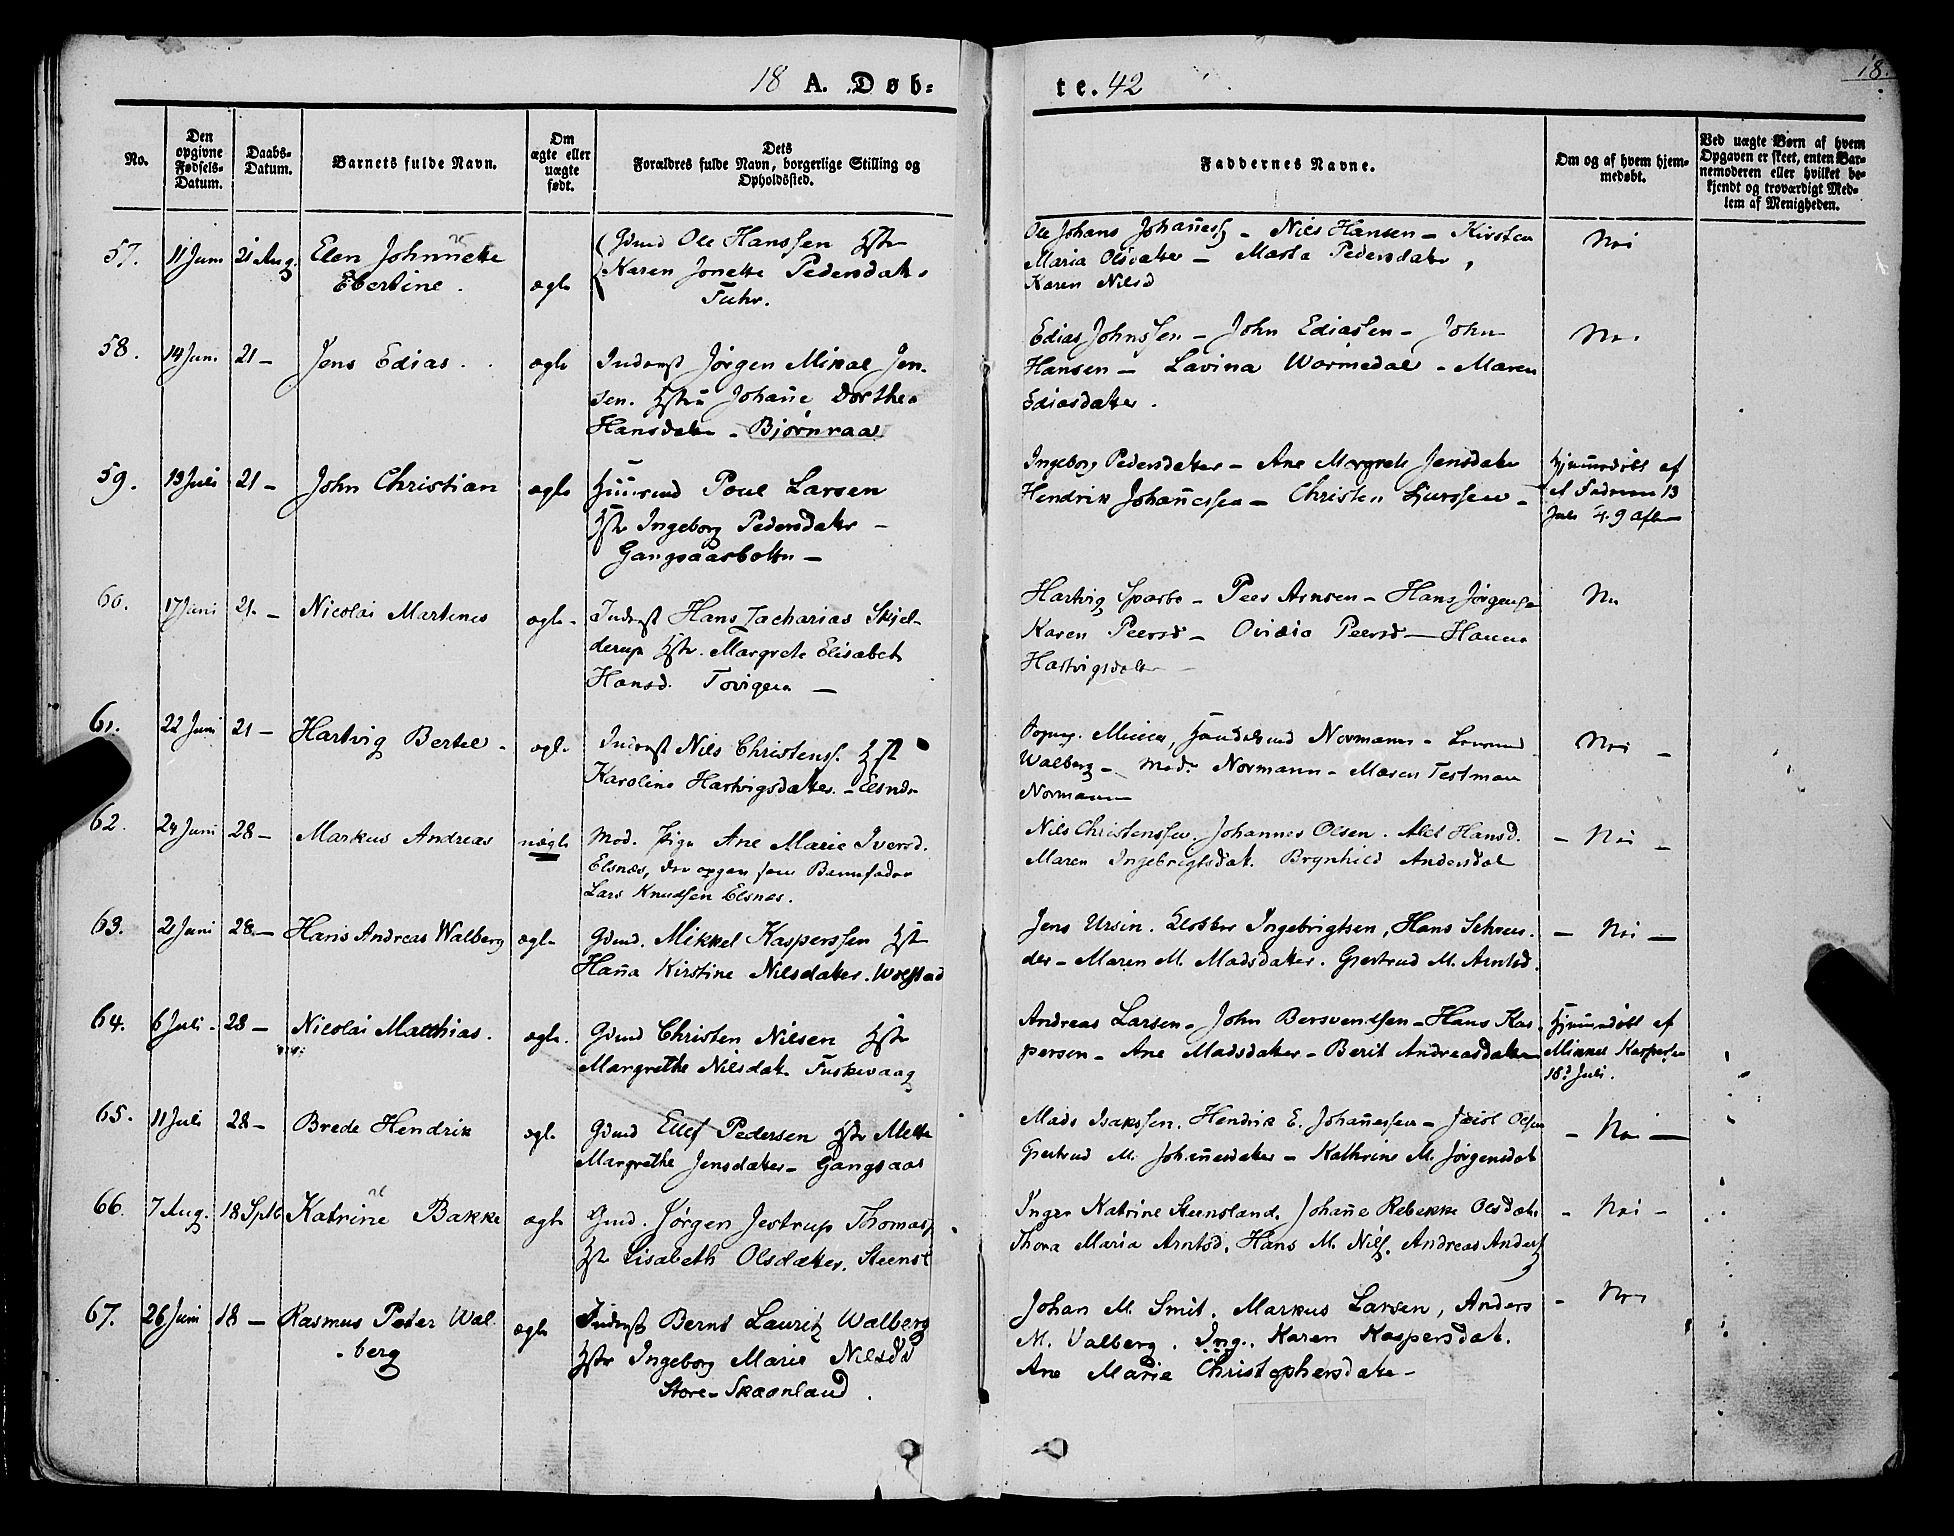 18 A. Døb= te. 42
18.
No.
Den opgivne Fødsels-Datum.
Daabs-Datum.
Barnets fulde Navn.
Om ægte eller uægte født.
Dets Forældres fulde Navn, borgerlige Stilling og Opholdssted.
Faddernes Navne.
Om og af hvem hjemmedøbt.
Ved uægte Børn af hvem Opgaven er skeet, enten Barnemoderen eller hvilket bekjendt og troværdigt Medlem af Menigheden.
57. 11 Juni 21 Aug. Elen Johnnette
Ebertine. ægte
Gmd Ole Hanssen Hstr
Karen Jonette Pedersdatr
Fuhr.
Ole Johans Johañess – Nils Hansen – Kirsten
Maria Olsdatter – Marta Pedersdatter,
Karen Nilsd
Nei
58. 14 Juni 21 – Jens Edias. ægte
Inderst Jørgen Mikal Jen-
sen. Hstr Johañe Dorthea
Hansdatr – Bjørnraa
Edias Johnssen – John Ediassen – John
Hansen – Lavina Wormedal – Maren
Ediasdatter.
Nei
59. 13 Juli 21 – John Christian ægte
Huusmd Poul Larsen
Hstr Ingeborg Pedersdatter –
Gangsaasbotten –
Ingeborg Pedersdatter – Ane Margrete Jensdatr
Hendrik Johañessen – Christen Sjurssen –
Hjemmedøbt af
Faderen 13
Juli 9 Aften
60. 17 Juni 21 – Nicolai Martines ægte –
Inderst Hans Zacharias Skjel-
derup Hstr. Margrete Elisabet
Hansd. Tovigen –
Hartvig Sparbo – Peer Arnsen – Hans Jørgens
Karen Peersd – Ovidia Peersd – Hanna
Hartvigsdatter
Nei
61. 22 Juni 21 – Hartvig Bertel – ægte
Inderst Nils Christens. Hst
Karoline Hartvigsdatter. – Elsnes
Handelsmd Normann –
Walberg – Mad. Normann – Maren Testman
Normann
Nei –
62. 24 Juni 28 – Markus Andreas uægte
Mod. Pige Ane Marie Iversd.
Elsnæs, der opgav som Barnefader
Lars Knudsen Elsnes.
Nils Christenssen. Johannes Olsen. Alet Hansd.
Maren Ingebrigtsdat. Brynhild Andersdat
– Nei –
63. 21 Juni 28 – Hans Andreas Walberg ægte
Gmd. Mikkel Kasperssen Hstr
Haña Kirstine Nilsdatter. Wolstad
Jens Ursin. Klokker Ingebrigtsen, Hans Schrøu-
der – Maren M. Madsdatter. Gjertrud M. Arntsd.
– Nei –
64. 6 Juli – 28 – Nicolai Matthias. ægte.
Gmd Christen Nilsen Hstr
Margrethe Nilsdat. Fuskevaag
Andreas Larsen – John Bersvendsen – Hans Kas-
persen – Ane Madsdatter – Berit Andreasdatter
Hjemmedøbt af
Mikkel Kaspersen
18d Juli.
65. 11 Juli 28 – Brede Hendrik ægte
Gmd Ellef Pedersen Hstr Mette
Margrethe Jensdatter – Gangsaas
Mads Isakssen. Hendrik E. Johañessen – Jacob Olsen
Gjertrud M. Johañesdatter – Kathrine M. Jørgensdat
– Nei –
66. 7 Aug. 18 Sptb Katrine Bakke ægte
Gmd. Jørgen Jestrup Thomass
Hstr Lisabeth Olsdatter. Steensl
Inger Katrine Steensland. Johañe Rebekke Olsdat.
Thora Maria Arntsd. Hans M. Nils. Andreas Anders
– Nei –
67. 26 Juni 18 – Rasmus Peter Wal-
berg ægte
Inderst Bernt Lauritz Walberg
Hstr Ingeborg Marie Nilsd
Store-Skaanland.
Johan M. Smit. Markus Larsen, Anders
M. Valberg. Ing. Karen Kaspersdat.
Ane Marie Christophersdatr –
– Nei